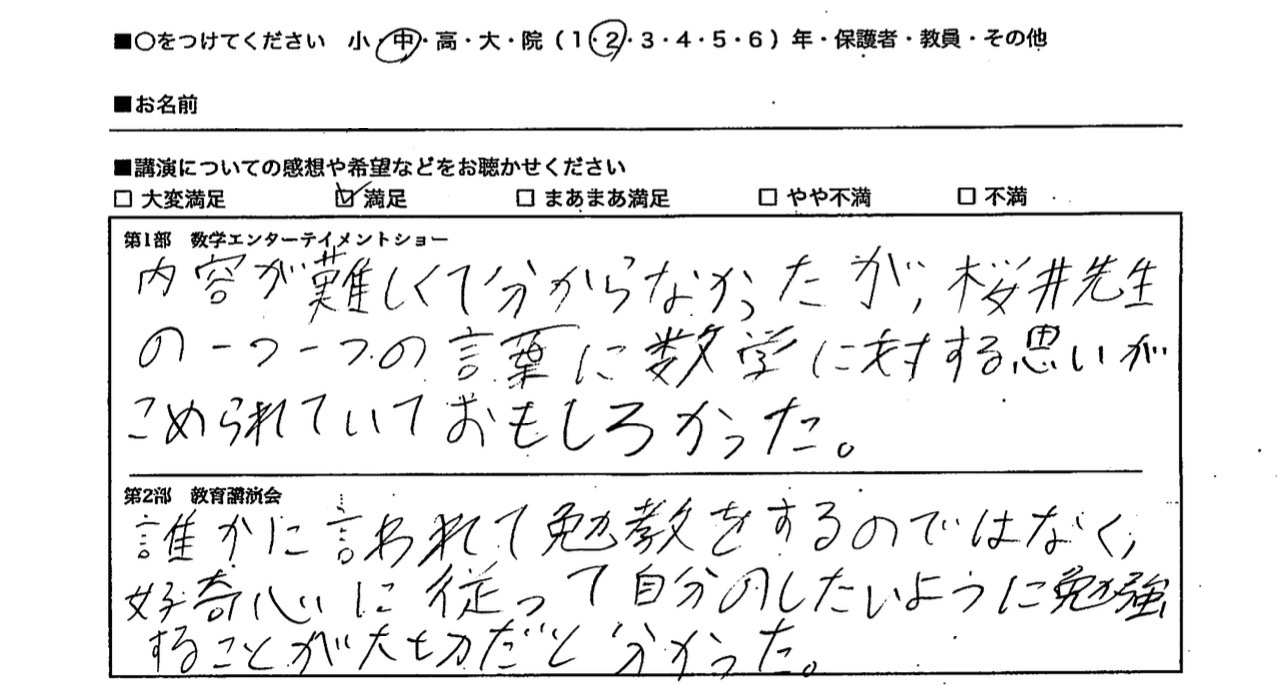 ■○をつけてください 小・中・高・大・院（1・2・3・4・5・6）年・保護者・教員・その他
■お名前
■講演についての感想や希望などをお聴かせください
□ 大変満足 ☑ 満足 □ まあまあ満足 □ やや不満 □ 不満
第1部 数学エンターテイメントショー
内容が難しくて分からなかったが、桜井先生
の一つ一つの言葉に数学に対する思いが
こめられていておもしろかった。
第2部 教育講演会
誰かに言われて勉教をするのではなく、
好奇心に従って自分のしたいように勉強
することが大切だと分かった。